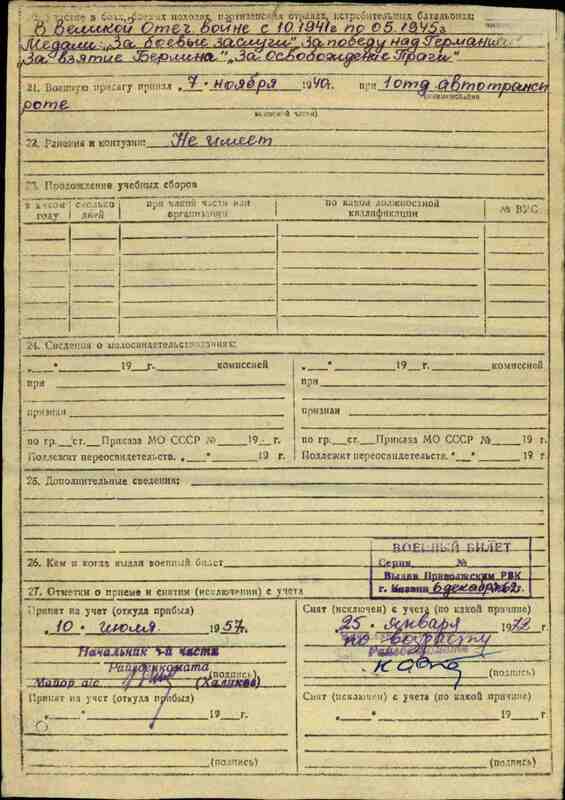 20. Участие в боях, боевых походах, партизанских отрядах, истребительных батальонах:
В Великой Отеч. войне с 10.1941г по 05.1945г
Медали: „За боевые заслуги", За победу над Германией"
„За взятие Берлина", „За Освобождение Праги"
21. Военную присягу принял „7" ноября 1940г. при 1 отд автотрансп
(наименование
роте
воинской части)
22. Ранения и контузии: Не имеет
23. Прохождение учебных сборов
в каком году
сколько дней
при какой части или организации
по какой должностной квалификации
№ ВУС
24. Сведения о медосвидетельствованиях:
„__" 19__г. комиссией
при
признан
по гр.__ст.__Приказа МО СССР №__19__г.
Подлежит переосвидетельств. „__" 19 г.
„__" 19__г. комиссией
при
признан
по гр.__ст.__Приказа МО СССР №__19 г.
Подлежит переосвидетельств. „__" 19 г.
25. Дополнительные сведения:
26. Кем и когда выдан военный билет
ВОЕННЫЙ БИЛЕТ
Серия №
Выдан Приволжским РВК
г. Казани 6 декабря
27. Отметки о приеме и снятии (исключении) с учета
Принят на учет (откуда прибыл)
„10" июля 1957г.
Начальник 3-й части
Райвоенкомата
(подпись)
Майор а/с (Халиков)
Снят (исключен) с учета (по какой причине)
„25" января 1972г.
по возрасту
Райвоенкомата
(подпись)
Принят на учет (откуда прибыл)
„__" 19__г.
(подпись)
Снят (исключен) с учета (по какой причине)
„__" 19__г.
(подпись)